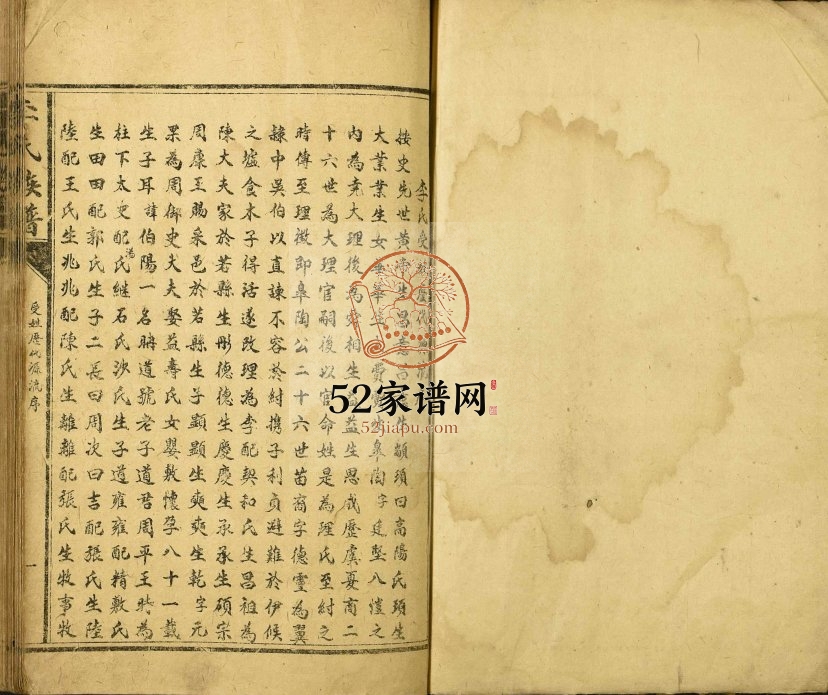 李氏受姓歷代源流序
按史先世黃帝生昌意昌生顓頊曰高陽氏頊生
大業業生女華生費皋陶字庭堅八愷之
內為堯大理後為虞相生益益生恩成歷虞夏商二
十六世為大理官嗣後以官命姓是為理氏至紂之
時傳至理徵即皋陶公二十六世苗裔字德靈為翼
隸中吳伯以直諫不容於紂携子利貞避難於伊候
之墟食木子得活遂改理為李配契和氏生昌祖為
陳大夫家於若縣生彤德德生慶慶生承承生碩宗
周康王賜采邑於若縣生子顯顯生爽爽生乾字元
果為周御史大夫娶益壽氏女嬰敷懷孕八十一載
生子耳諱伯陽一名聃道號老子道君周平王時為
柱下太史配湯氏繼石氏沙氏生子道雍雍配精敷氏
生田田配郭氏生子二長曰周次曰吉配張氏生陸
陸配王氏生兆兆配陳氏生離離配張氏生牧事牧
李氏族譜
受姓歷代源流序
一
52家谱网
52jiapu.com